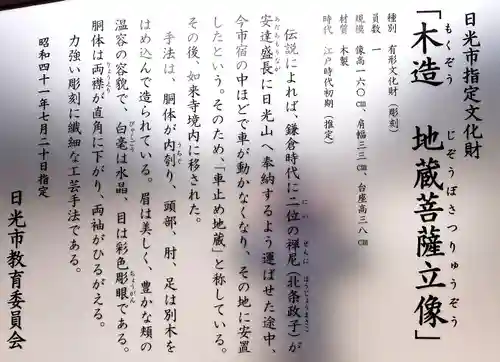 日光市指定文化財
「木造　地蔵菩薩立像」
もくぞう　じぞうぼさつりゅうぞう
種別　有形文化財（彫刻）
員数　一
規模　像高一六〇㎝、肩幅三三㎝、台座高三八㎝
材質　木製
時代　江戸時代初期（推定）
伝説によれば、鎌倉時代に二位の禅尼（北条政子）が
にい　ぜんに　ほうじょうまさこ
安達盛長に日光山へ奉納するよう運ばせた途中、
あだちもりなが
今市宿の中ほどで車が動かなくなり、その地に安置
したという。そのため、「車止め地蔵」と称している。
その後、如来寺境内に移された。
手法は、胴体が内刳り、頭部、肘、足は別木を
うちぐ
はめ込んで造られている。眉は美しく、豊かな頬の
温容の容貌で、白毫は水晶、目は彩色彫眼である。
びゃくごう　ちょうがん
胴体は両襟が直角に下がり、両袖がひるがえる。
りょうえり
力強い彫刻に繊細な工芸手法である。
昭和四十一年七月二十日指定
日光市教育委員会